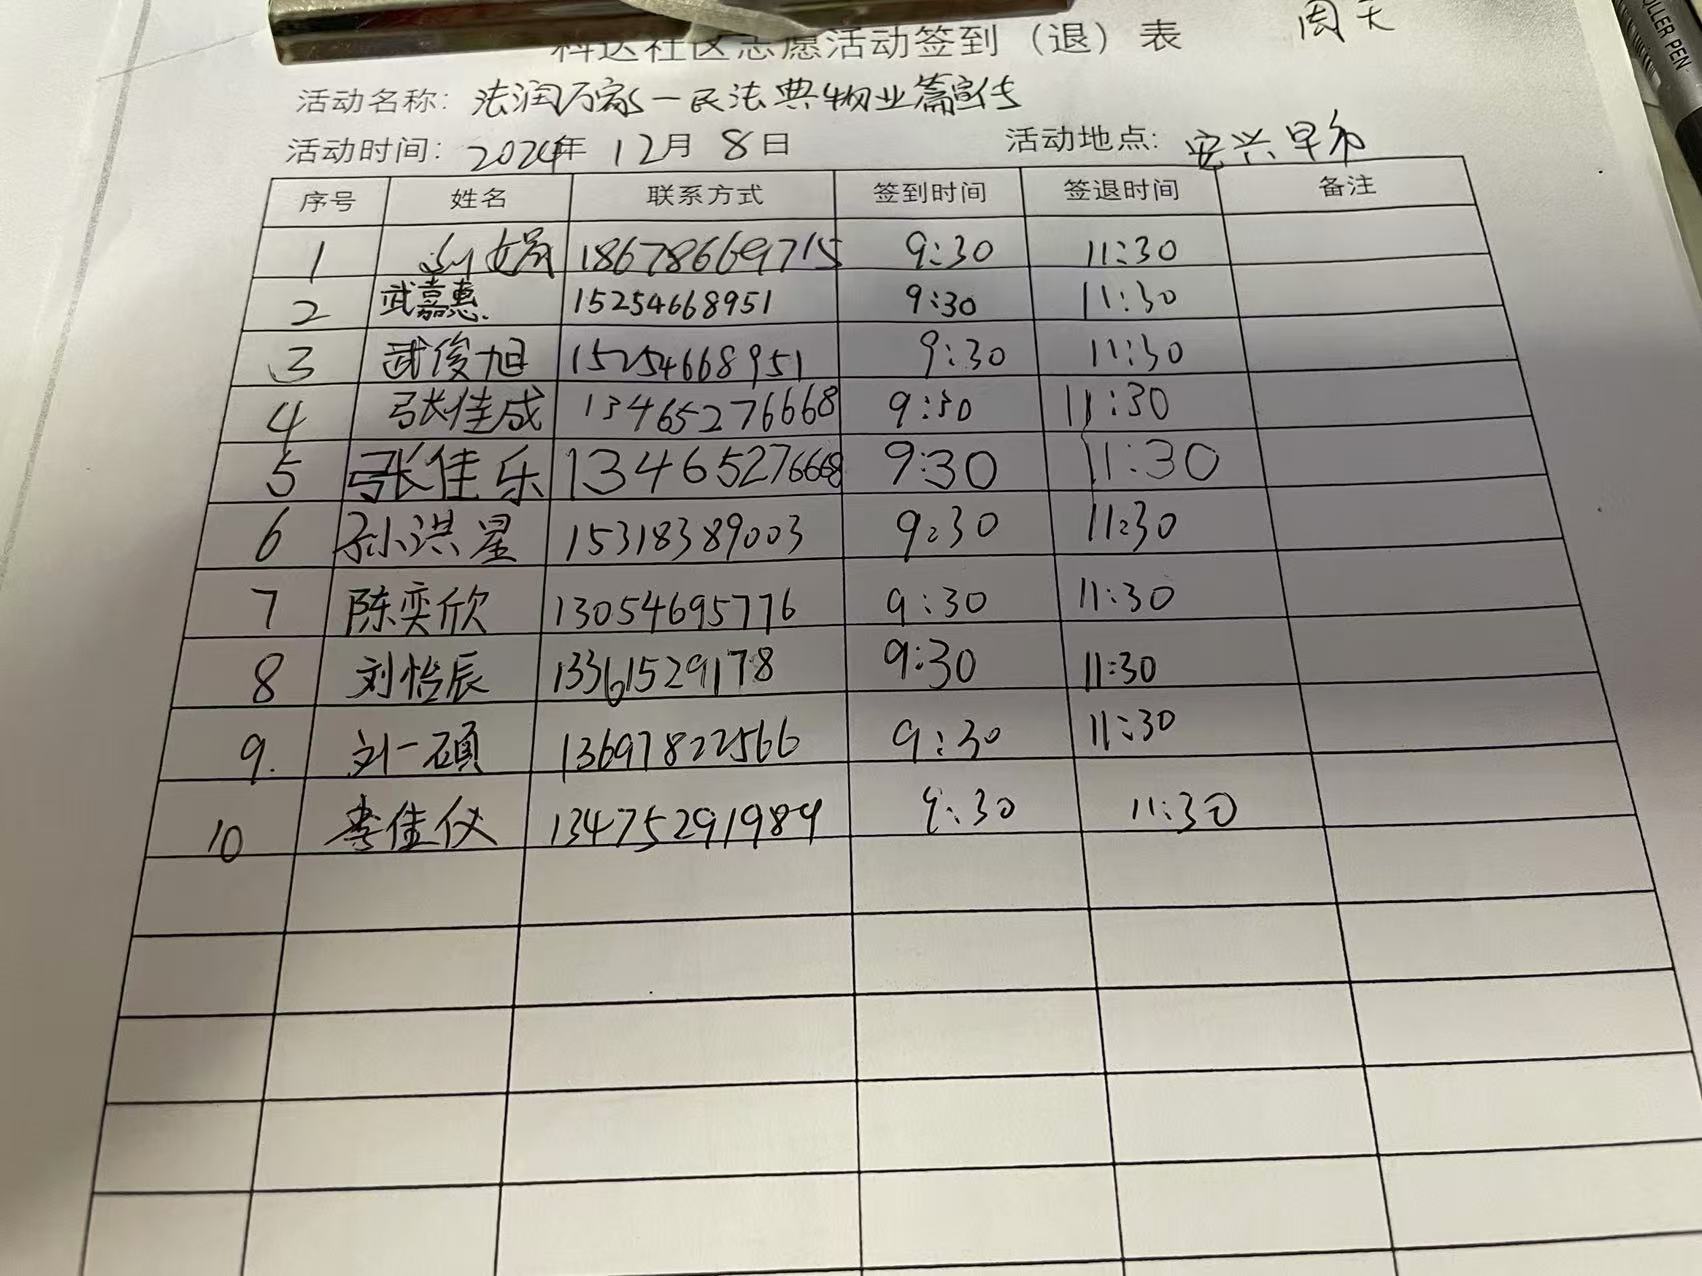 周天
科达社区志愿活动签到（退）表
活动名称：法润万家一民法典物业篇宣传
活动时间：2024年 12月 8日 活动地点：安兴早市
序号 姓名 联系方式 签到时间 签退时间 备注
1 刘娟 18678669715 9:30 11:30
2 武嘉惠 15254668951 9:30 11:30
3 武俊旭 15254668951 9:30 11:30
4 张佳成 13465276668 9:30 11:30
5 张佳乐 13465276668 9:30 11:30
6 孙洪星 15318389003 9:30 11:30
7 陈奕欣 13054695776 9:30 11:30
8 刘怡辰 13361529178 9:30 11:30
9. 刘一硕 13697822566 9:30 11:30
10 李佳仪 13475291989 9:30 11:30
LLER PEN